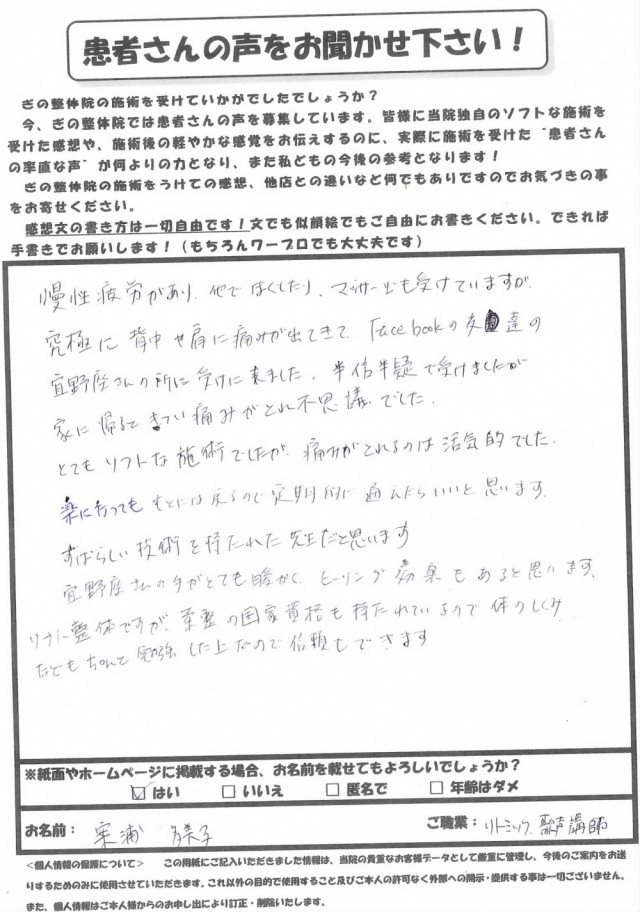 患者さんの声をお聞かせ下さい！
ぎの整体院の施術を受けていかがでしたでしょうか？
今、ぎの整体院では患者さんの声を募集しています。皆様に当院独自のソフトな施術を
受けた感想や、施術後の軽やかな感覚をお伝えするのに、実際に施術を受けた“患者さん
の率直な声”が何よりの力となり、また私どもの今後の参考となります！
ぎの整体院の施術をうけての感想、他店との違いなど何でもありですのでお気づきの事
をお寄せください。
感想文の書き方は一切自由です！文でも似顔絵でもご自由にお書きください。できれば
手書きでお願いします！（もちろんワープロでも大丈夫です）
慢性疲労があり、他で ほぐしたり、マッサージも受けていますが、
究極に 背中や肩に痛みが出てきて、Facebookの友達の
宜野座さんの所に受けに来ました。半信半疑で受けましたが
家に帰ると きつい痛みがとれ不思議でした。
とても ソフトな施術でしたが、痛みがとれるのは活気的でした。
楽になっても もとには戻るので定期的に通えたらいいと思います。
すばらしい技術を持たれた先生だと思います
宜野座さんの手がとても暖かく、ヒーリング効果もあると思います。
整体ですが、柔整の国家資格も持たれているので体のしくみ
などもちゃんと勉強した上なので信頼もできます
※紙面やホームページに掲載する場合、お名前を載せてもよろしいでしょうか？
☑はい □いいえ □匿名で □年齢はダメ
お名前： 浦 美子 ご職業：リトミック 講師
＜個人情報の保護について＞ この用紙にご記入いただきました情報は、当院の貴重なお客様データとして厳重に管理し、今後のご案内をお送
りするためのみに使用させていただきます。これ以外の目的で使用すること及びご本人の許可なく外部への開示・提供する事は一切ございません。
また、個人情報はご本人様からのお申し出により訂正・削除いたします。